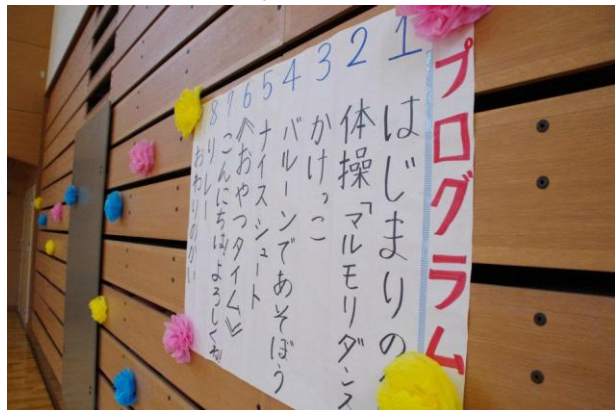 プログラム
1 はじまりの
2 体操「マルモリダンス
3 かけっこ
4 バルーンであそぼう
5 ナイスシュート
6 《おやつタイム》
7 こんにちは、よろしくね
8 リレー
おわりのかい